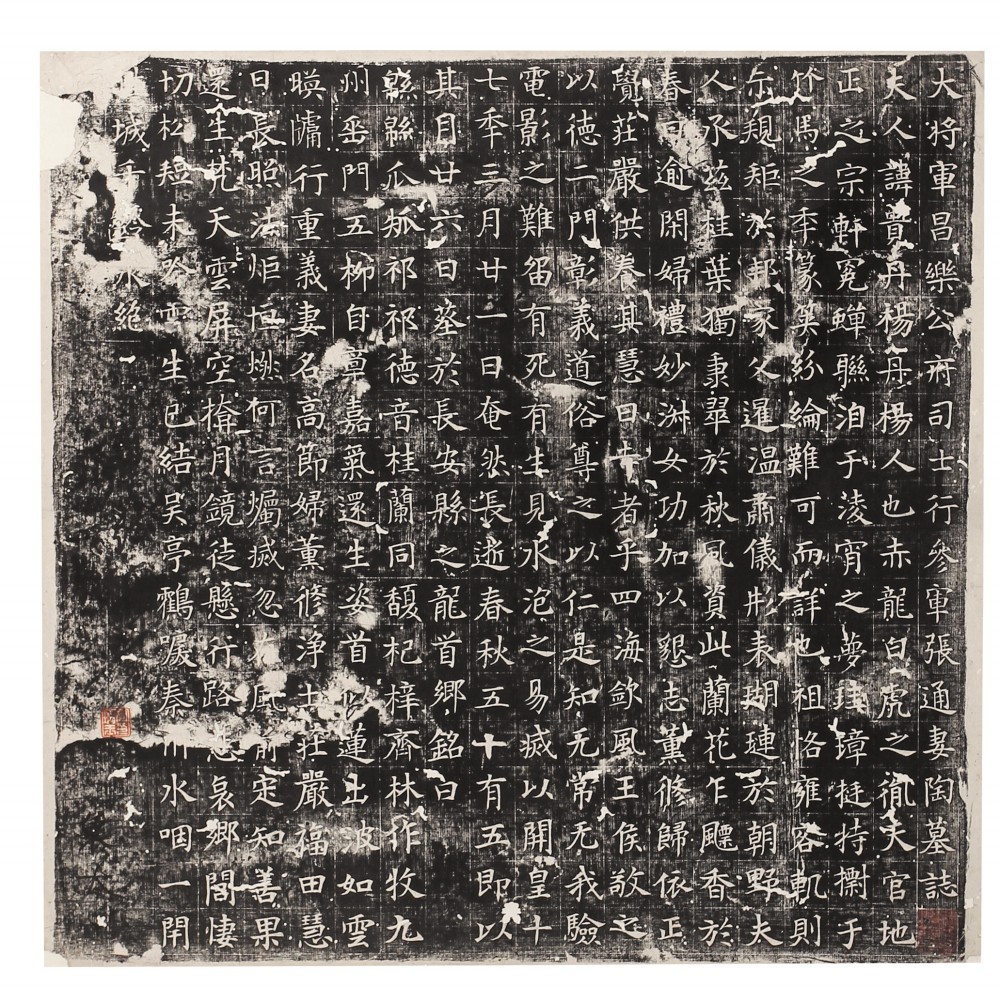 大將軍昌樂公府司士行參軍張通妻陶墓誌
夫人諱貴丹楊丹楊人也赤龍白虎之胤天官地
正之宗軒冕蟬聯洎于淩宵之夢珪璋挺特摛于
竹馬之秊篆美紛綸難可而詳也祖恪雍容軌則
示規矩於邦家父暹温肅儀形表瑚璉於朝野夫
人承兹桂葉獨秉翠於秋風資此蘭花乍飄香於
春日逾閑婦禮妙洊女功加以懇志薰修歸依正
覺莊嚴供養其慧日寺者乎四海欽風王侯敬之
以德二門彰義道俗尊之以仁是知无常无我驗
電影之難留有死有生見水泡之易滅以開皇十
七秊三月廿一日奄然長逝春秋五十有五即以
其月廿六日塟於長安縣之龍首鄉銘曰
緜緜瓜瓞祁祁德音桂蘭同馥杞梓齊林作牧九
州垂門五柳自覃嘉氣還生姿首似蓮出波如雲
暎牖行重義妻名高節婦薰修淨土莊嚴福田慧
日長照法炬恒燃何言燭滅忽在風前定知善果
還生梵天雲屏空揜月鏡徒懸行路悲哀鄉閭悽
切松短未吟雲生已結吴亭鶴唳秦川水咽一閇
城千齡永絕